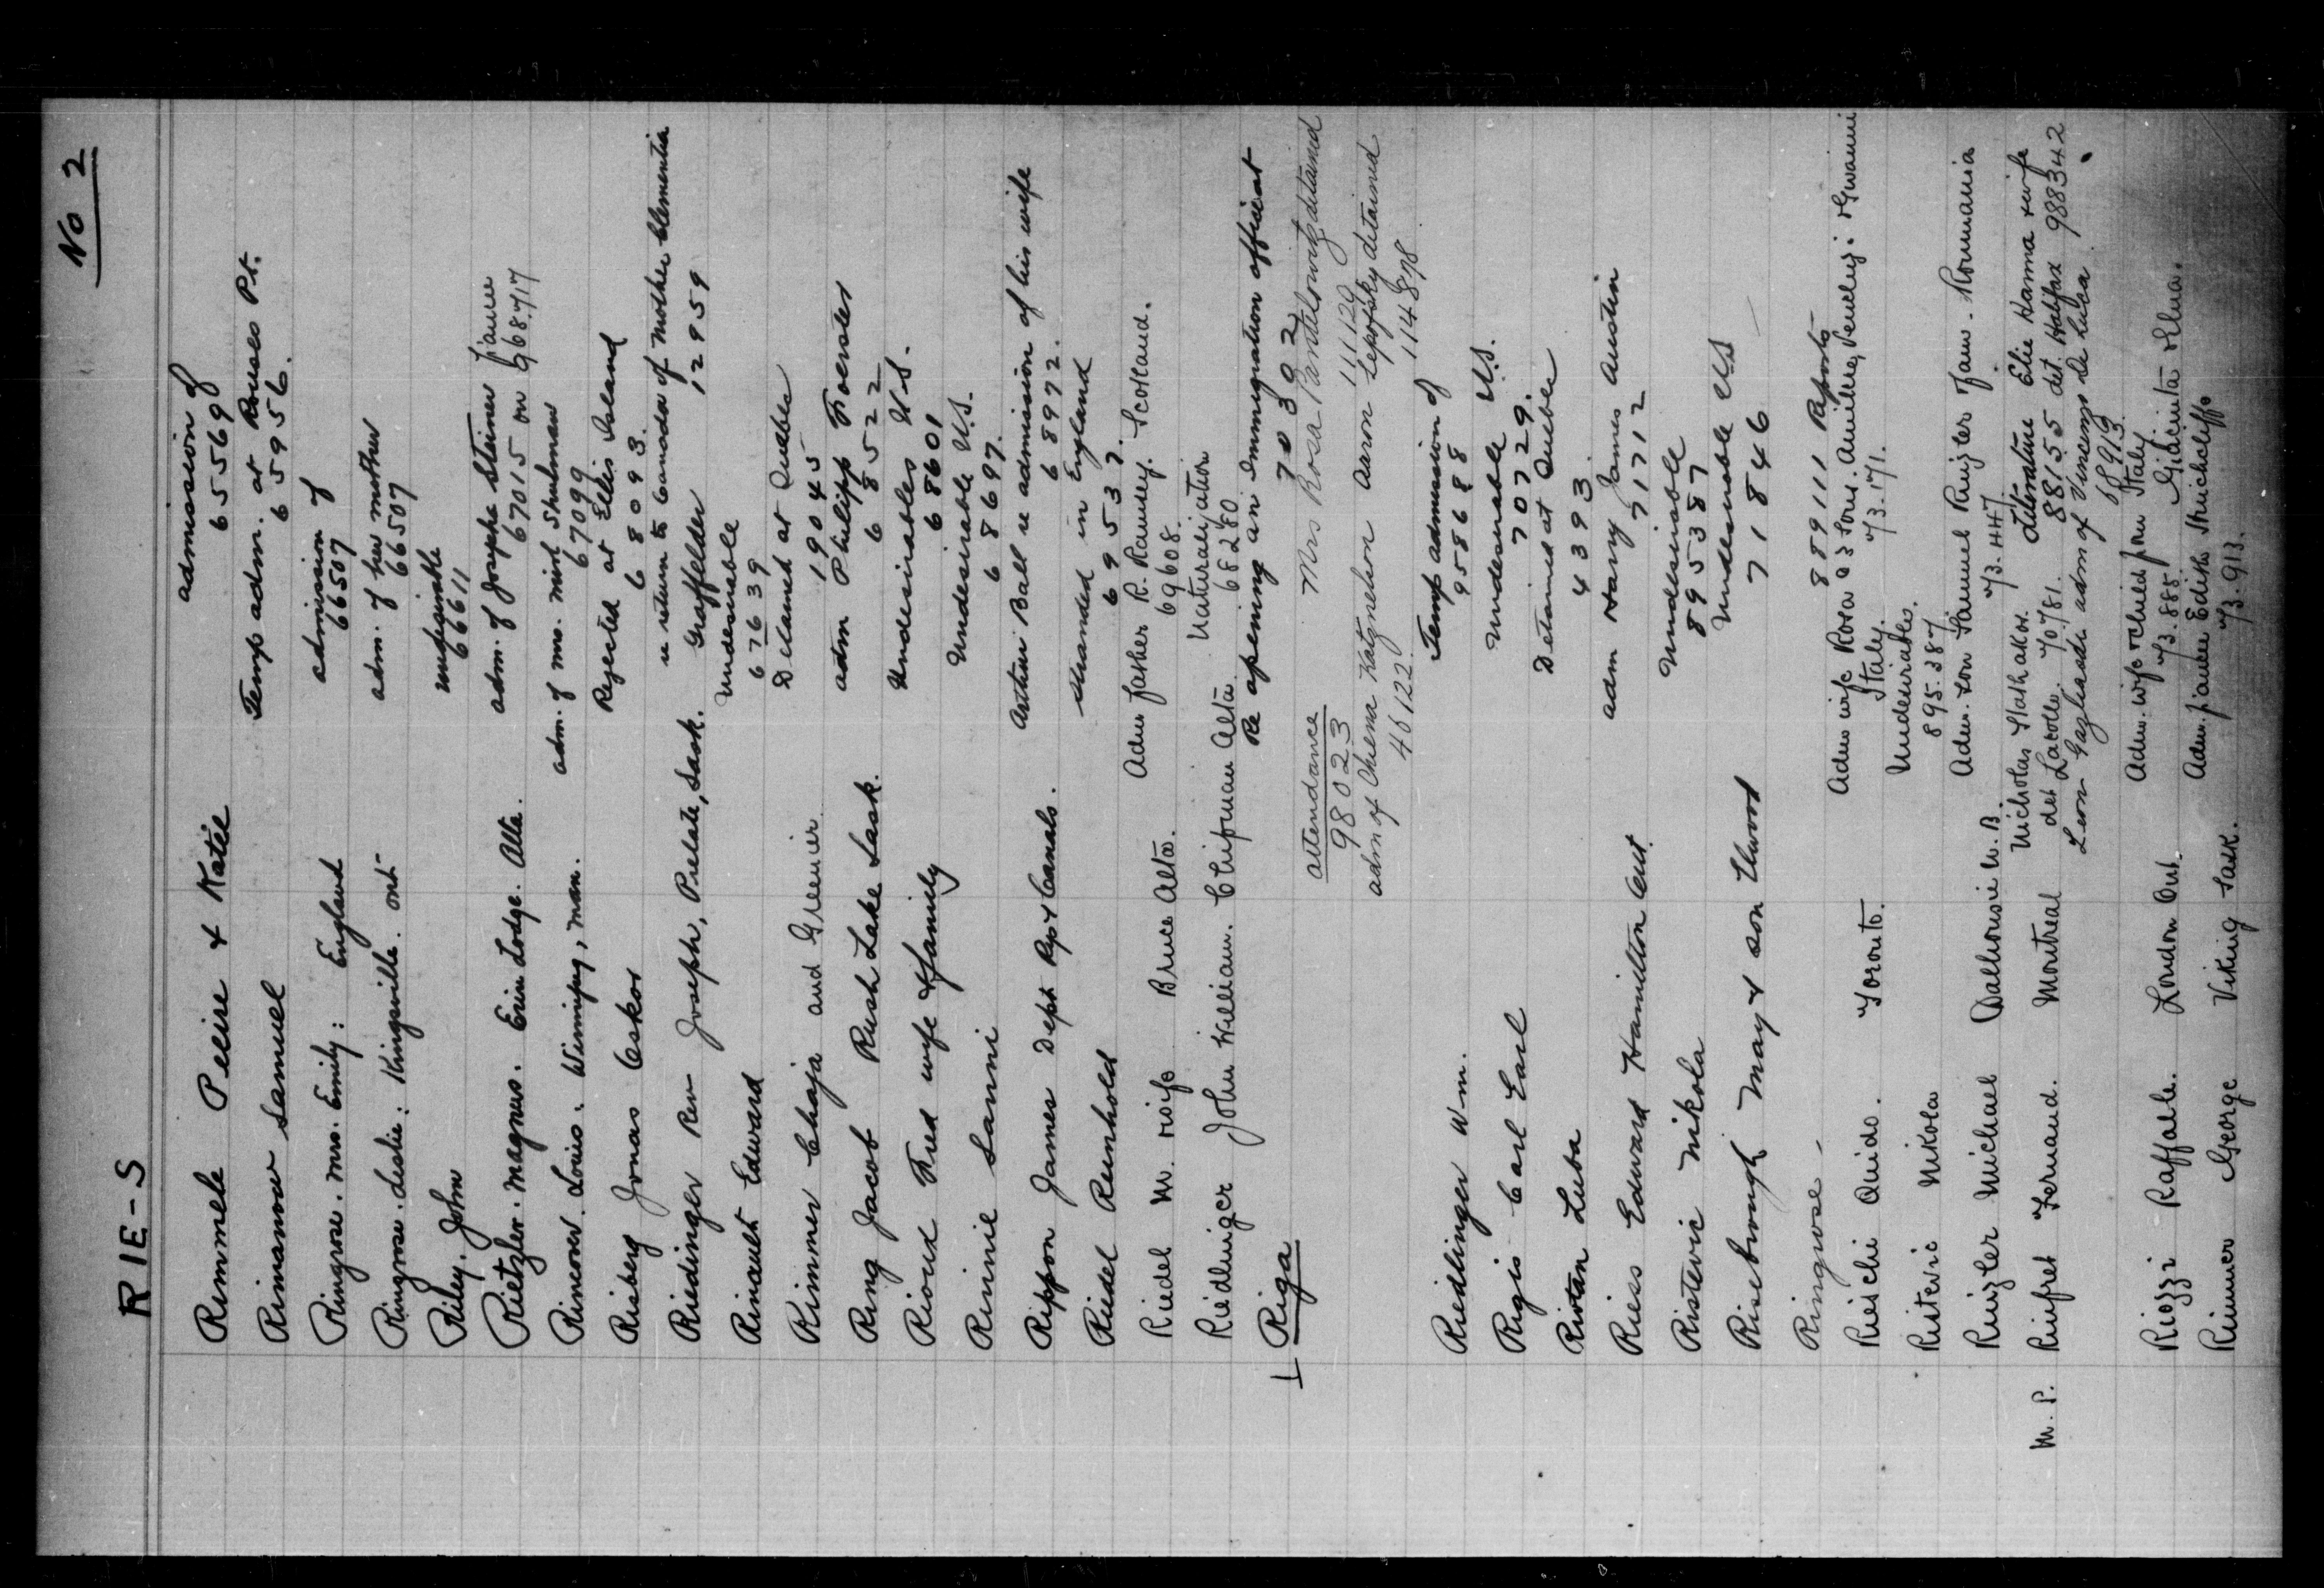 No 2
RIE-S
Rimmele Peeire & Katie admission of
65569
Rimanow Samuel Temp adm. at Rouses Pt.
65956.
Ringrose. Mrs. Emily: England admission of
66507
Ringrose. Leslie: Kingsville. Ont adm. of her mother
66507
Riley. John undesirable
66611
Rietzler. Magnus. Erin Lodge. Alta. adm. of Josepha Steiner fiancee
67015 on 968717
Rimcover. Louis. Winnipeg, Man. adm. of Mrs. Mirl Shulman
67099
Risberg Jonas Oskar Rejected at Ellis Island
68093.
Riedinger Rev Joseph, Prelate, Sask. re return to Canada of Mother Clementia
Graffelder 12959
Rinault Edward Undesirable
67639
Rimmer Chaja and Greenier Detained at Quebec
19045
Ring Jacob Rush Lake Sask. adm Philipp Foerster
68522
Rioux Fred wife & family Undesirables U.S.
68601
Rinnie Sanni Undesirable U.S.
68697.
Rippon James Dept Rys & Canals. Arthur Ball re admission of his wife
68972.
Riedel Reinhold stranded in England
69537.
Riedel M. wife Bruce Alta. Adm father R. Ramsey. Scotland.
69608.
Riedlinger John William. Chipman Alta Naturalization
68280
Riga Re opening an Immigration office at
70392
attendance Mrs Rosa Pantelowitz detained
98023 111120
adm of Chiena Katznelson Aaron Lepofsky detained
46122 114878
Riedlinger Wm. Temp admission of
958688
Rigis Carl Earl Undesirable U.S.
70729.
Ristan Luba Detained at Quebec
4393
Riess Edward Hamilton Ont. adm Harry James Austin
71712
Ristevic Nikola Undesirable
895387
Riseborough May & son Elwood Undesirable U.S
71846
Ringrose - 889111 Reports
Rieschi Quido. Toronto. Adm wife Rosa & 3 sons. Achille, Venely & Giovanni
Italy. 73.171.
Ristevic Nikola Undesirables.
895.387
Rinzler Michael Dalhousie N.B. Adm. son Samuel Rinzler Jaw. Roumania
73.447.
M.P. Rinfret Fernand. Montreal Nicholas Stathakos. Literature Elie Hanna & wife
det Lacolle. 70781. 88155 det. Halifax 988342
Leon Gagliardi adm of Vincenzo De Luca
68913.
Riozzi Raffaele. London Ont. Adm. wife & child from Italy
73.885. Giacinta & Elena.
Rimmer George Viking Sask. Adm. fiancee Edith Shuichcliffe
73.913.